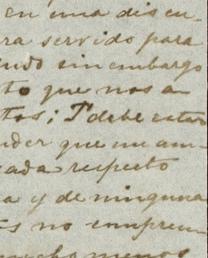 en una discu
ra servido para
endo sin embargo
to que nos a
ttos; T debe estar
nder que me am
cada respecto
a y de ninguna
es no compren
mucho menos